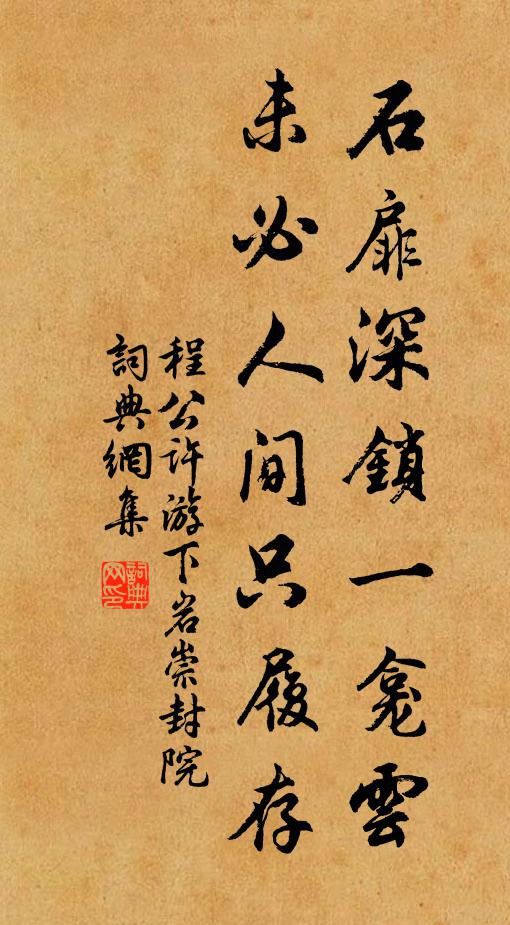 石扉深鎖一龕雲
未必人間只履存
程公許游下岩崇封院
詞典網集
詞典網印